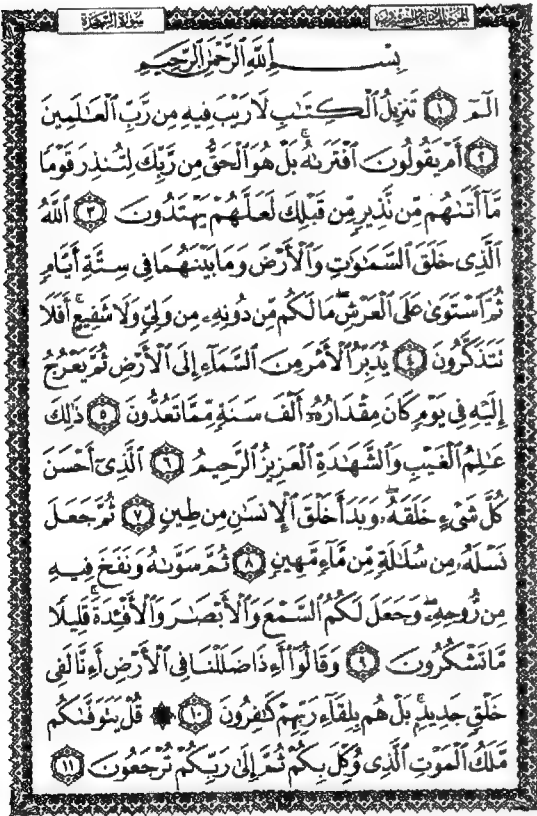 سُورَةُ السَّجْدَةِ
بِسْمِ ٱللَّهِ ٱلرَّحْمَٰنِ ٱلرَّحِيمِ
الٓمٓ ١ تَنزِيلُ ٱلْكِتَٰبِ لَا رَيْبَ فِيهِ مِن رَّبِّ ٱلْعَٰلَمِينَ
٢ أَمْ يَقُولُونَ ٱفْتَرَىٰهُ ۚ بَلْ هُوَ ٱلْحَقُّ مِن رَّبِّكَ لِتُنذِرَ قَوْمًا
مَّآ أَتَىٰهُم مِّن نَّذِيرٍ مِّن قَبْلِكَ لَعَلَّهُمْ يَهْتَدُونَ ٣ ٱللَّهُ
ٱلَّذِى خَلَقَ ٱلسَّمَٰوَٰتِ وَٱلْأَرْضَ وَمَا بَيْنَهُمَا فِى سِتَّةِ أَيَّامٍ
ثُمَّ ٱسْتَوَىٰ عَلَى ٱلْعَرْشِ ۖ مَا لَكُم مِّن دُونِهِۦ مِن وَلِىٍّ وَلَا شَفِيعٍ ۚ أَفَلَا
تَتَذَكَّرُونَ ٤ يُدَبِّرُ ٱلْأَمْرَ مِنَ ٱلسَّمَآءِ إِلَى ٱلْأَرْضِ ثُمَّ يَعْرُجُ
إِلَيْهِ فِى يَوْمٍ كَانَ مِقْدَارُهُۥٓ أَلْفَ سَنَةٍ مِّمَّا تَعُدُّونَ ٥ ذَٰلِكَ
عَٰلِمُ ٱلْغَيْبِ وَٱلشَّهَٰدَةِ ٱلْعَزِيزُ ٱلرَّحِيمُ ٦ ٱلَّذِىٓ أَحْسَنَ
كُلَّ شَىْءٍ خَلَقَهُۥ ۖ وَبَدَأَ خَلْقَ ٱلْإِنسَٰنِ مِن طِينٍ ٧ ثُمَّ جَعَلَ
نَسْلَهُۥ مِن سُلَٰلَةٍ مِّن مَّآءٍ مَّهِينٍ ٨ ثُمَّ سَوَّىٰهُ وَنَفَخَ فِيهِ
مِن رُّوحِهِۦ ۖ وَجَعَلَ لَكُمُ ٱلسَّمْعَ وَٱلْأَبْصَٰرَ وَٱلْأَفْـِٔدَةَ ۚ قَلِيلًا
مَّا تَشْكُرُونَ ٩ وَقَالُوٓا۟ أَءِذَا ضَلَلْنَا فِى ٱلْأَرْضِ أَءِنَّا لَفِى
خَلْقٍ جَدِيدٍۭ ۚ بَلْ هُم بِلِقَآءِ رَبِّهِمْ كَٰفِرُونَ ١٠ ۞ قُلْ يَتَوَفَّىٰكُم
مَّلَكُ ٱلْمَوْتِ ٱلَّذِى وُكِّلَ بِكُمْ ثُمَّ إِلَىٰ رَبِّكُمْ تُرْجَعُونَ ١١